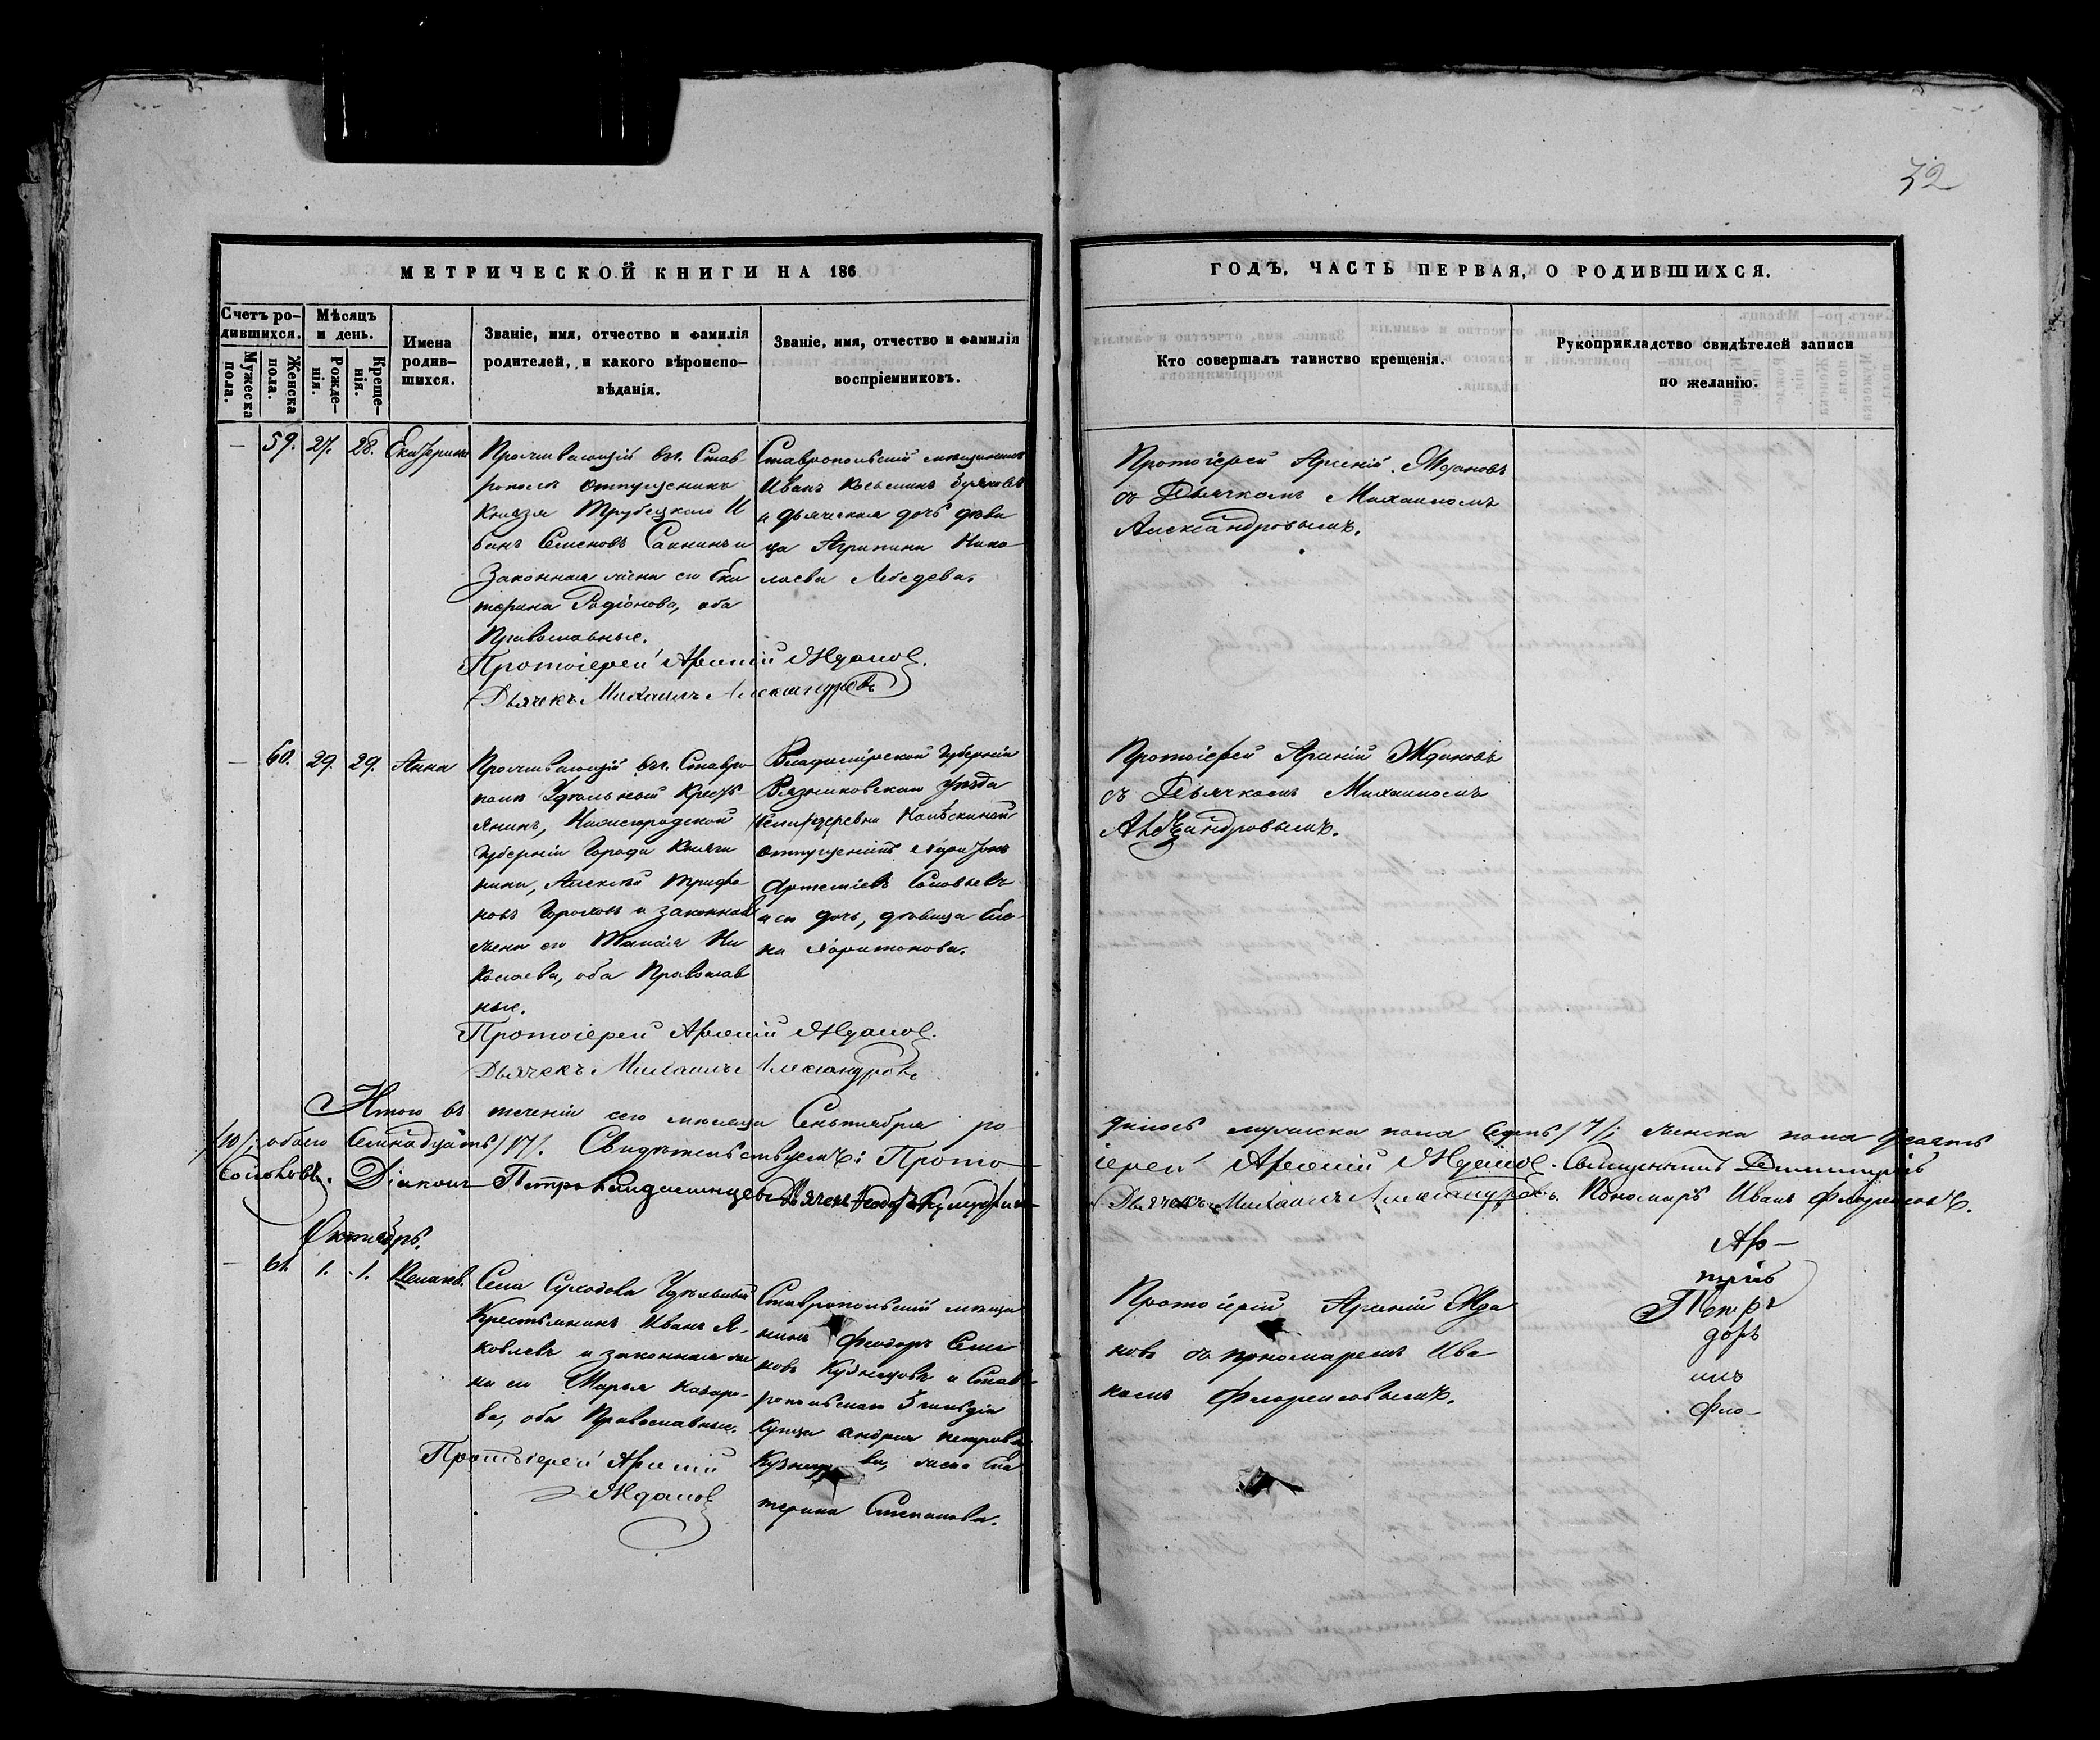 32
МЕТРИЧЕСКОЙ КНИГИ НА 186
Счетъ ро-
дившихся.
Мужеска
пола.
Женска
пола.
Мѣсяцъ
и день.
Рожде-
нія.
Креще-
нія.
Имена
родив-
шихся.
Званіе, имя, отчество и фамилія
родителей, и какого вѣроиспо-
вѣданія.
Званіе, имя, отчество и фамилія
воспріемниковъ.
ГОДЪ, ЧАСТЬ ПЕРВАЯ, О РОДИВШИХСЯ.
Кто совершалъ таинство крещенія.
Рукоприкладство свидѣтелей записи
по желанію.
— 59. 27. 28. Екатерина
Проживающій въ г. Став-
рополѣ отпущеникъ
Князя Трубецкаго И
ванъ Семеновъ и
Законная жена его Ека
терина Родіонова, оба
Православные.
Протоіерей Арсеній Ждановъ.
Дьячекъ Михаилъ Александровъ
Ставропольскій мѣщанинъ
Иванъ Косьминъ
и дьяческая дочь дѣви
ца Агрипина Нико-
лаева Лебедева.
Протоіерей Арсеній Ждановъ
съ Дьячкомъ Михаиломъ
Александровымъ.
— 60. 29. 29. Анна
Проживающій въ г. Ставро-
полѣ Удѣльный Кресть-
янинъ, Нижегородской
Губерніи Города Княги
нина, Алексѣй Трифо-
новъ Гороховъ и законная
жена его Ни
колаева, оба Православ
ные.
Протоіерей Арсеній Ждановъ.
Дьячекъ Михаилъ Александровъ
Владимірской Губерніи
Вязниковскаго Уѣзда
деревни
отпущеникъ Харитонъ
Артемьевъ Соловьевъ
и его дочь, дѣвица Еле-
на Харитонова.
Протоіерей Арсеній Ждановъ
съ Дьячкомъ Михаиломъ
Александровымъ.
Итого въ теченіи сего мѣсяца Сентября ро-
дилось мужеска пола Седмь /7/; женска пола десять
/10/; обоего Семнадцать /17/. Свидѣтельствуемъ: Прото-
іерей Арсеній Ждановъ. Священникъ Димитрій
Соколовъ. Діаконъ Петръ Дьячекъ
Дьячекъ Михаилъ Александровъ. Пономарь Иванъ Флоринсовъ.
Октябрь.
— 61. 1. 1.
Села Суходола Удѣльный
Крестьянинъ Иванъ Я-
ковлевъ и законная же
на его Марья Назаро-
ва, оба Православные.
Протоіерей Арсеній
Ждановъ
Ставропольскій мѣща
нинъ Феодоръ Семе
новъ Кузнецовъ и Став-
ропольскаго 3 гильдіи
Купца Андрея Петрова
жена Ека
терина Степанова.
Протоіерей Арсеній Жда
новъ съ пономаремъ Ива
номъ Флоринсовымъ.
Ар-
трій
Петръ
доръ
илъ
Фло-